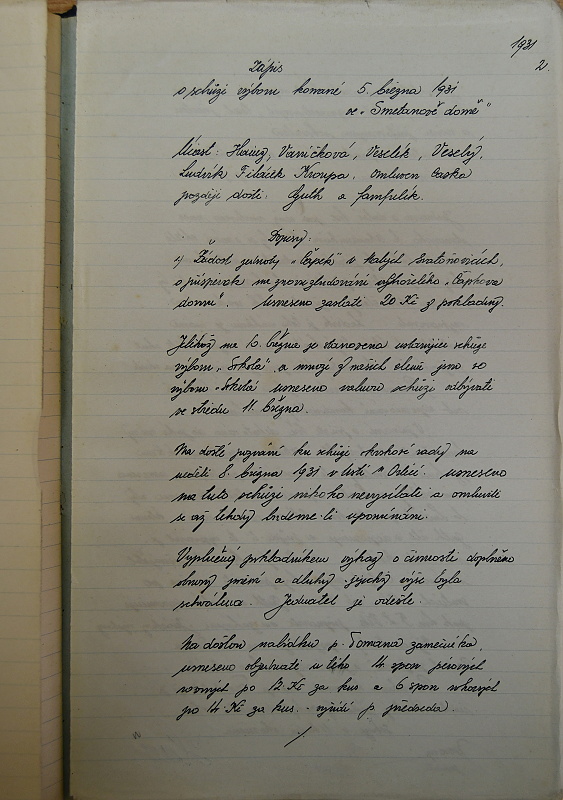 1931
2.
Zápis
o schůzi výboru konané 5. března 1931
ve „Smetanově domě"
Účast: Vaníčková, Veselík, Veselý,
Ludvík Filáček Kroupa, omluven
později došli: Guth a Jamfulík.
Dopisy:
1) Žádost jednoty „Čapek" v Malých Svatoňovicích,
o příspěvek na znovuzbudování vyhořelého „Čapkova
domu". Usneseno zaslati 20 Kč z pokladny.
Jelikož na 6. března je stanovena ustavující schůze
výboru „Sokola" a mnozí z našich členů jsou ve
výboru „Sokola" usneseno valnou schůzi odbývati
ve středu 11. března.
Na došlé pozvání ku schůzi okrskové rady na
neděli 8. března 1931 v Ústí n Orlicí. usneseno
na tuto schůzi nikoho nevysílati a omluviti
se až tehdy budeme-li upomínáni.
Vyplněný pokladníkem výkaz o činnosti doplněno
jmění a dluhy jejichž výše byla
schválena. Jednatel je odešle.
Na došlou nabídku p. Tomana zámečníka,
usneseno objednati u něho 14 spon pérových
rovných po 12 Kč za kus a 6 spon rohových
po 14 Kč za kus. - vyřídí p předseda.
./.